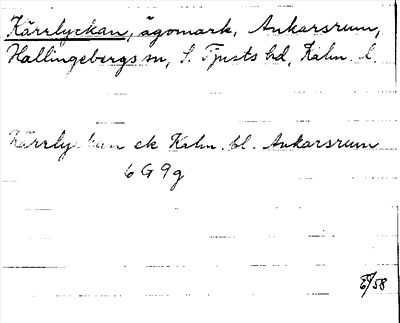 Kärrlyckan, ägomark, Ankarsrum,
Hallingebergs sn, S. Tjusts hd, Kalm. l.
Kärrlyckan ek Kalm. bl. Ankarsrum
6 G 9 g